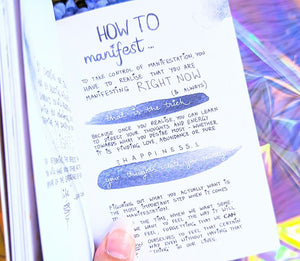 HOW TO
manifest...
TO TAKE CONTROL OF MANIFESTATION, YOU
HAVE TO REALISE THAT YOU ARE
MANIFESTING RIGHT NOW
(& ALWAYS)
that is the trick
BECAUSE ONCE YOU REALISE, YOU CAN LEARN
TO DIRECT YOUR THOUGHTS AND ENERGY
TOWARDS WHAT YOU DESIRE MOST - WHETHER
IT IS FINDING LOVE, ABUNDANCE OR PURE
HAPPINESS.
FIGURING OUT WHAT YOU ACTUALLY WANT IS
THE MOST IMPORTANT STEP WHEN IT COMES
MANIFESTATION.
THE TIME WHEN WE WANT
WE WANT TO FEEL THE WAY IT WILL
FEEL, FORGETTING THAT WE CAN
OURSELVES TO FEEL THAT CERTAIN
WAY EVEN WITHOUT HAVING THAT
THING IN OUR LIVES.